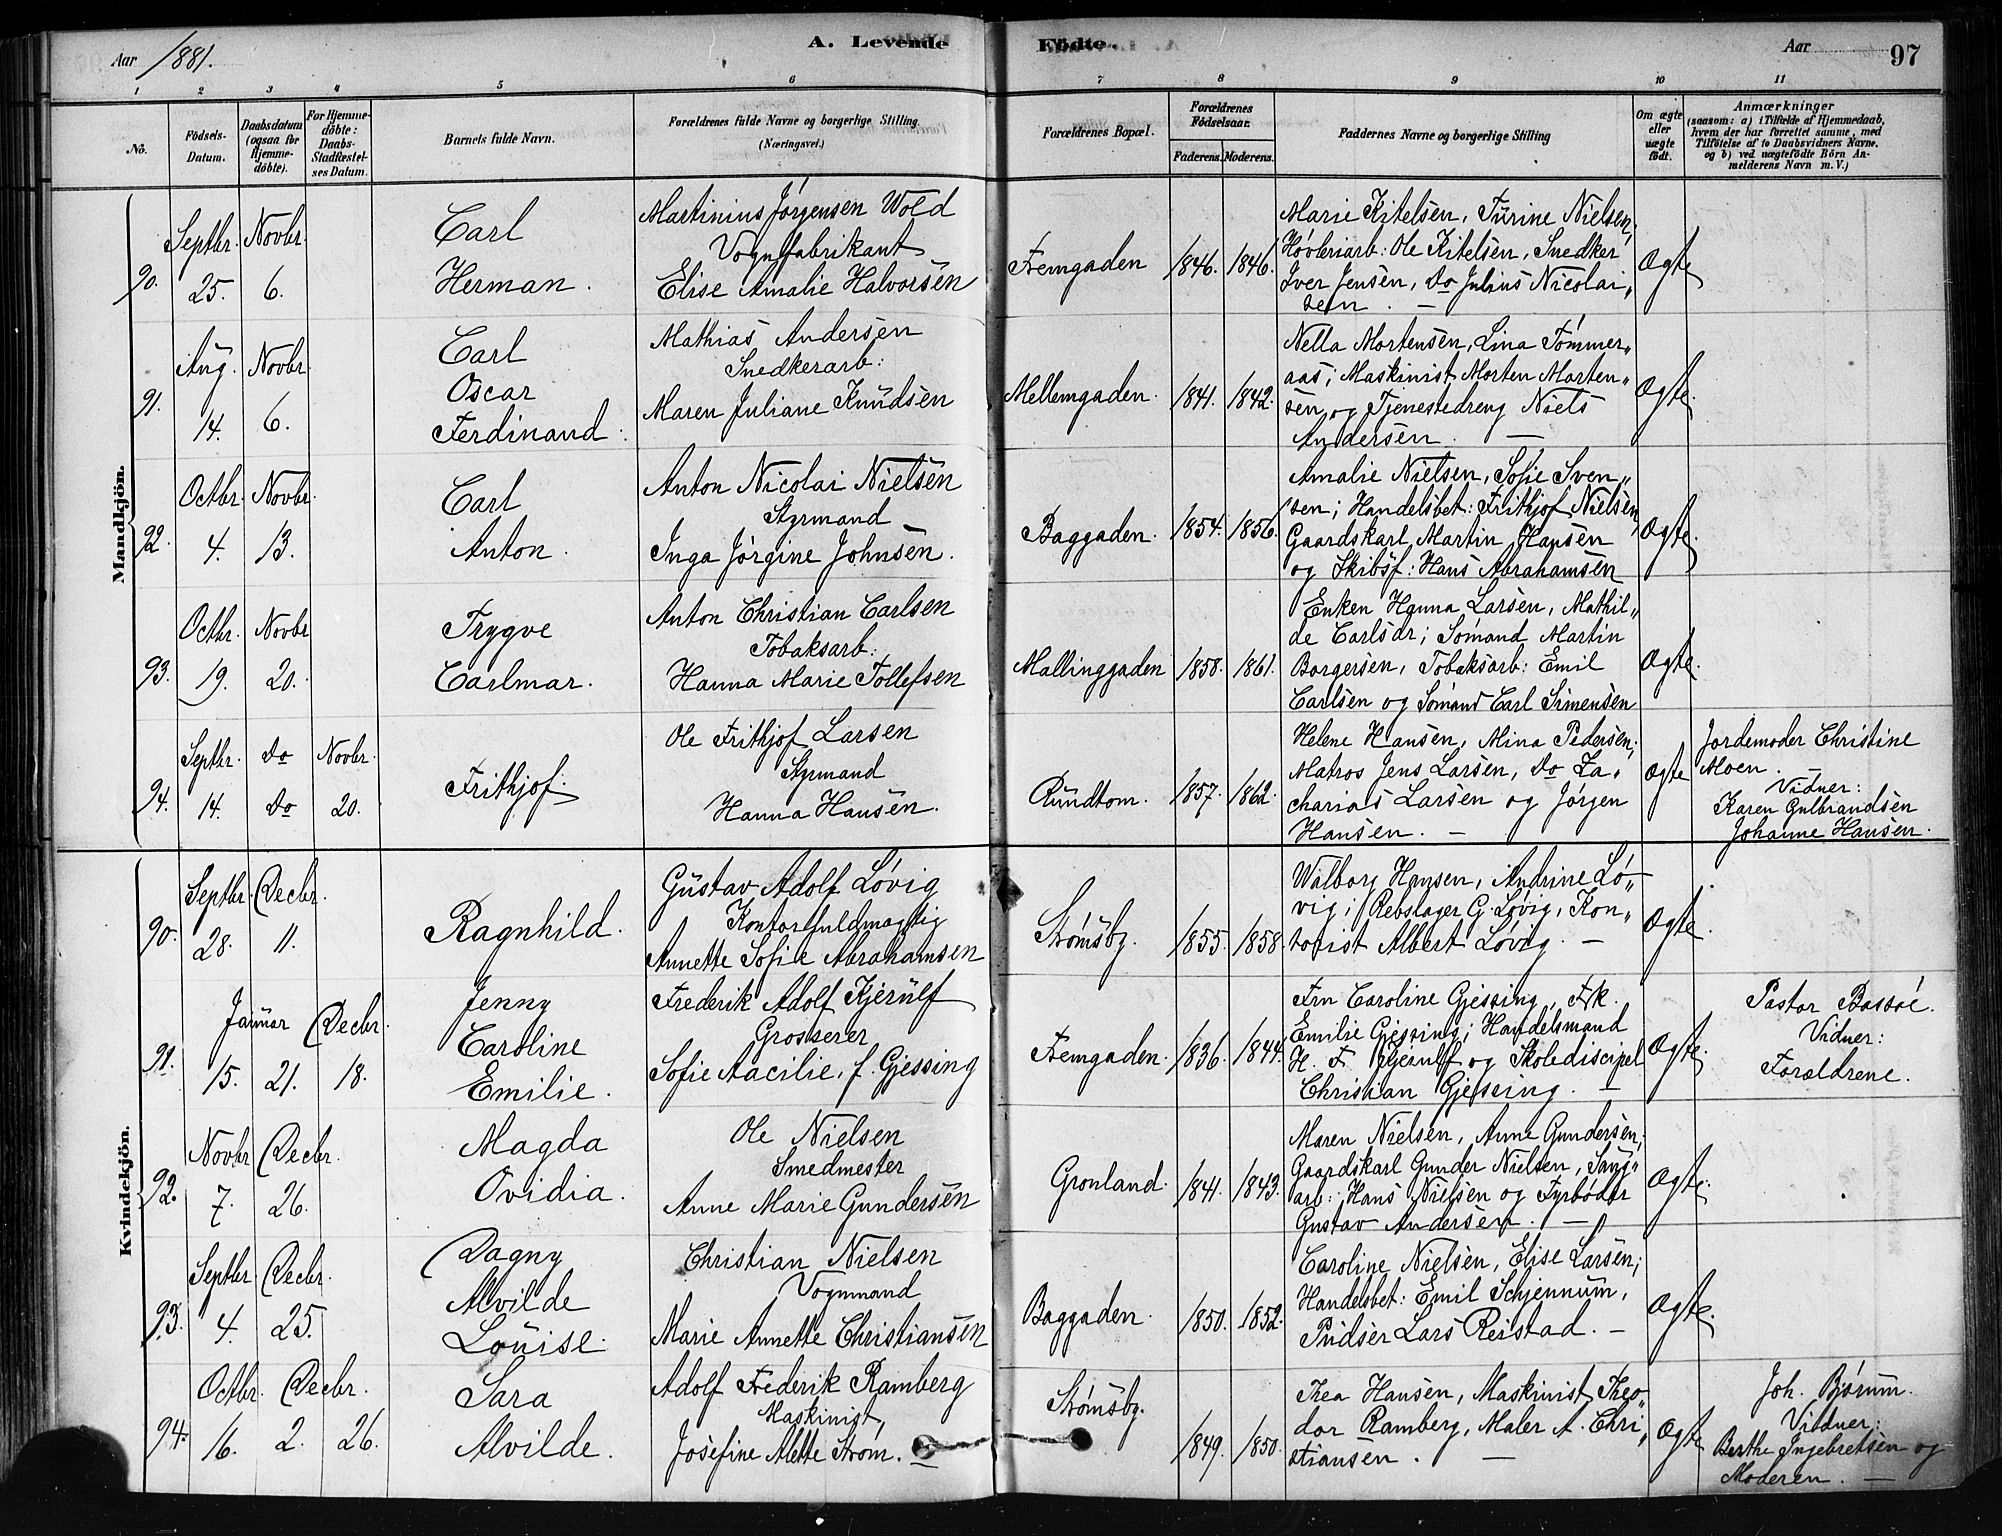 Aar 1881.
A. Levende
Fødte.
Aar
97
1 2 3 4 5 6 7 8 9 10 11
No.
Fødsels-
Datum.
Daabsdatum
(ogsaa for
Hjemme-
døbte).
For Hjemme-
døbte:
Daabs-
Stadfæstel-
ses Datum.
Barnets fulde Navn.
Forældrenes fulde Navne og borgerlige Stilling.
(Næringsvei.)
Forældrenes Bopæl.
Forældrenes
Fødselsaar.
Faderens. Moderens.
Faddernes Navne og borgerlige Stilling
Om ægte
eller
uægte
født.
Anmærkninger
(saasom: a) i Tilfælde af Hjemmedaab,
hvem der har forrettet samme, med
Tilføielse af to Daabsvidners Navne,
og b) ved uægtefødte Børn An-
melderens Navn m.V.)
Mandkjön.
90.
Septbr.
25.
Novbr.
6.
Carl
Herman.
Martinius Jörgensen Wold
Vognfabrikant
Elise Amalie Halvorsen
Fremgaden
1846. 1846.
Marie Kitelsen, Turine Nielsen,
Høvleriarb: Ole Kitelsen, Snedker
Iver Jensen, do Julius Nicolai„
sen. —
Ægte
91.
Aug.
14.
Novbr.
6.
Carl
Oscar
Ferdinand.
Mathias Andersen
Snedkerarb:
Maren Juliane Knudsen
Mellemgaden.
1841. 1842.
Nella Mortensen, Lina Tømmer„
aas; Maskinist Morten Morten„
sen og Tjenestedreng Niels
Andersen. —
Ægte.
92.
Octbr.
4.
Novbr.
13.
Carl
Anton.
Anton Nicolai Nielsen
Styrmand
Inga Jörgine Johnsen.
Baggaden.
1854. 1856.
Amalie Nielsen, Sofie Sven„
sen; Handelsbet: Frithjof Nielsen,
Gaardskarl Martin Hansen
og Skibsf: Hans Abrahamsen
Ægte.
93.
Octbr.
19.
Novbr
20.
Trygve
Carlmar.
Anton Christian Carlsen
Tobaksarb:
Hanna Marie Tollefsen
Mallinggaden
1858. 1861.
Enken Hanna Larsen, Mathil„
de Carlsdr; Sømand Martin
Borgersen, Tobaksarb: Emil
Carlsen og Sømand Carl Simensen
Ægte.
94.
Septbr.
14.
do
do
Novbr.
20.
Frithjof.
Ole Frithjof Larsen
Styrmand
Hanna Hansen.
Rundtom.
1857. 1862.
Helene Hansen, Mina Pedersen;
Matros Jens Larsen, do Za„
charias Larsen og Jörgen
Hansen. —
Ægte
Jordemoder Christine
Moen.
Vidner:
Karen Gulbrandsen
Johanne Hansen.
Kvindekjön.
90.
Septbr.
28.
Decbr.
11.
Ragnhild.
Gustav Adolf Lövig
Kontorfuldmægtig
Annette Sofie Abrahamsen
Strömsby.
1855. 1858.
Walborg Hansen, Andrine Lö„
vig; Rebslager G. Lövig, Kon„
torist Albert Lövig. —
Ægte.
91.
Januar
15. 21.
Decbr.
18.
Jenny
Caroline
Emilie.
Frederik Adolf Kjerulf
Grosserer
Sofie Aacilie, f. Gjessing
Fremgaden.
1836. 1844.
Fru Caroline Gjessing, Frk.
Emilie Gjessing; Handelsmand
H. F. Kjerulf og Skolediscipel
Christian Gjessing. —
Ægte.
Pastor Bassøe.
Vidner:
Forældrene.
92.
Novbr
7.
Decbr.
26.
Magda
Ovidia.
Ole Nielsen
Smedmester
Anne Marie Gundersen
Gronland.
1841. 1843.
Maren Nielsen, Anne Gundersen;
Gaardskarl Gunder Nielsen, Saug„
arb: Hans Nielsen og Fyrbøder
Gustav Andersen. —
Ægte.
93.
Septbr.
4.
Decbr.
25.
Dagny
Alvilde
Louise.
Christian Nielsen
Vognmand
Marie Annette Christiansen
Baggaden.
1850. 1852.
Caroline Nielsen, Elise Larsen;
Handelsbet: Emil Schjennum,
Pudser Lars Reistad. —
Ægte.
94.
Octbr.
16.
Decbr.
2. 26.
Sara
Alvilde.
Adolf Frederik Ramberg
Maskinist,
Josefine Alette Strøm. —
Strömsby.
1849. 1850.
Thea Hansen, Maskinist Theo„
dor Ramberg, Maler A. Chri„
stiansen. —
Ægte
Joh. Bjørum.
Vidner:
Berthe Ingebretsen og
Moderen. —